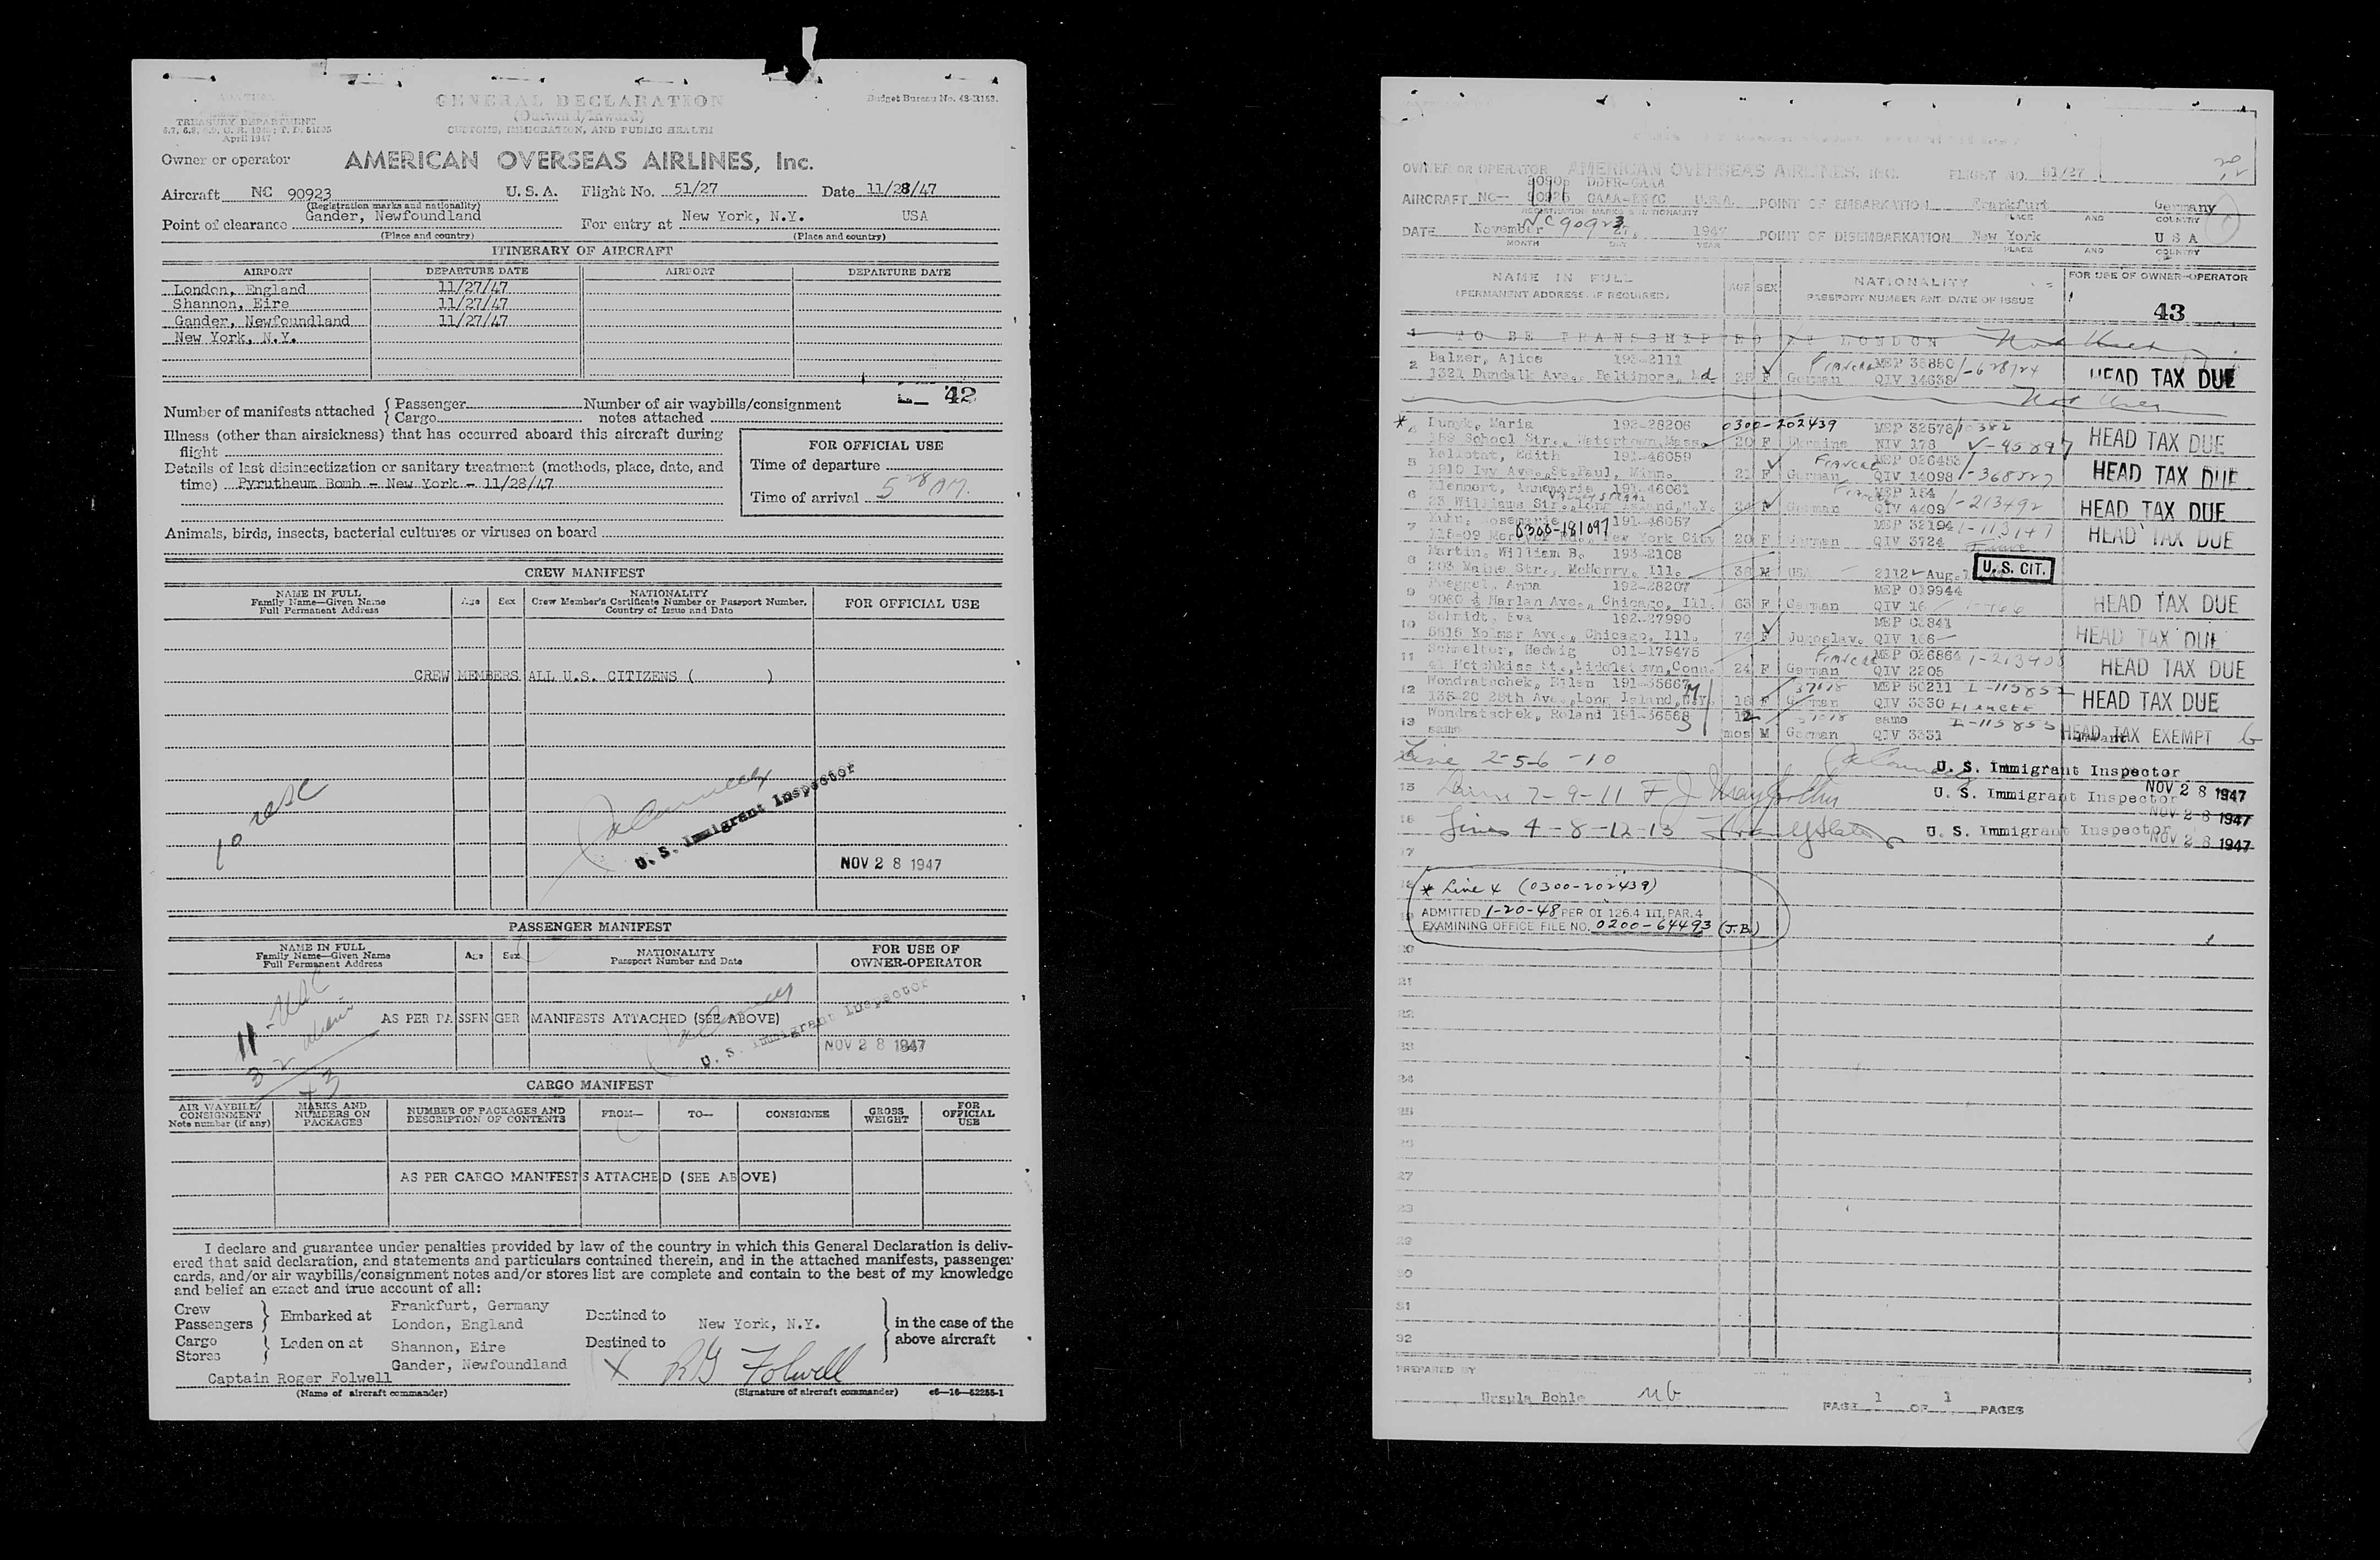 GENERAL DECLARATION
(Outward/Inward)
CUSTOMS, IMMIGRATION, AND PUBLIC HEALTH
Budget Bureau No. 48-R153.
TREASURY DEPARTMENT
April 1947
Owner or operator AMERICAN OVERSEAS AIRLINES, Inc.
Aircraft NC 90923 U. S. A. Flight No. 51/27 Date 11/28/47
(Registration marks and nationality)
Point of clearance Gander, Newfoundland For entry at New York, N.Y. USA
(Place and country) (Place and country)
ITINERARY OF AIRCRAFT
AIRPORT DEPARTURE DATE AIRPORT DEPARTURE DATE
London, England 11/27/47
Shannon, Eire 11/27/47
Gander, Newfoundland 11/27/47
New York, N.Y.
42
Number of manifests attached { Passenger Number of air waybills/consignment
Cargo notes attached
Illness (other than airsickness) that has occurred aboard this aircraft during
flight
Details of last disinsectization or sanitary treatment (methods, place, date, and
time) Pyrutheum Bomb - New York - 11/28/47
FOR OFFICIAL USE
Time of departure
Time of arrival 5 28 AM.
Animals, birds, insects, bacterial cultures or viruses on board
CREW MANIFEST
NAME IN FULL
Family Name—Given Name
Full Permanent Address
Age Sex
NATIONALITY
Crew Member's Certificate Number or Passport Number,
Country of Issue and Date
FOR OFFICIAL USE
CREW MEMBERS ALL U.S. CITIZENS ( )
10 USC
U. S. Immigrant Inspector
NOV 28 1947
PASSENGER MANIFEST
NAME IN FULL
Family Name—Given Name
Full Permanent Address
Age Sex
NATIONALITY
Passport Number and Date
FOR USE OF
OWNER-OPERATOR
11 - USC
32 aliens
43
AS PER PASSENGER MANIFESTS ATTACHED (SEE ABOVE)
U. S. Immigrant Inspector
NOV 28 1947
CARGO MANIFEST
AIR WAYBILL/
CONSIGNMENT
Note number (if any)
MARKS AND
NUMBERS ON
PACKAGES
NUMBER OF PACKAGES AND
DESCRIPTION OF CONTENTS
FROM— TO— CONSIGNEE
GROSS
WEIGHT
FOR
OFFICIAL
USE
AS PER CARGO MANIFESTS ATTACHED (SEE ABOVE)
I declare and guarantee under penalties provided by law of the country in which this General Declaration is deliv-
ered that said declaration, and statements and particulars contained therein, and in the attached manifests, passenger
cards, and/or air waybills/consignment notes and/or stores list are complete and contain to the best of my knowledge
and belief an exact and true account of all:
Crew
Passengers } Embarked at Frankfurt, Germany
London, England
Destined to New York, N.Y.
Cargo
Stores } Laden on at Shannon, Eire
Gander, Newfoundland
Destined to
in the case of the
above aircraft
Captain Roger Folwell X RG Folwell
(Name of aircraft commander) (Signature of aircraft commander) c6—16—52255-1
OWNER OR OPERATOR AMERICAN OVERSEAS AIRLINES, INC. FLIGHT NO. 51/27
AIRCRAFT NC-- U.S.A. POINT OF EMBARKATION Frankfurt Germany
REGISTRATION MARKS & NATIONALITY PLACE AND COUNTRY
NC 90923
DATE November 27, 1947 POINT OF DISEMBARKATION New York U S A
MONTH DAY YEAR PLACE AND COUNTRY
NAME IN FULL
(PERMANENT ADDRESS, IF REQUIRED)
AGE SEX
NATIONALITY
PASSPORT NUMBER AND DATE OF ISSUE
FOR USE OF OWNER-OPERATOR
43
1 TO BE TRANSSHIPPED AT LONDON Not Used
2 Balzer, Alice 193-2111 MEP 35850
1321 Dundalk Ave., Baltimore, Md. F German QIV 14638 HEAD TAX DUE
Not Used
* 4 Lunyk, Maria 192-28206 0300-202439 MEP 32578
159 School Str., Watertown, Mass. 20 F Ukraine NIV 178 HEAD TAX DUE
5 Edith 191-46059 MEP 026453
1910 Ivy Ave., St. Paul, Minn. F German QIV 14098 HEAD TAX DUE
6 Annemarie 191-46061 MEP 154
23 Williams Str., Long Island, N.Y. German QIV 4409 1-213492 HEAD TAX DUE
7 Kuhn, Rosemarie 191-46057 MEP 32194
0300-181097
New York City 20 F German QIV 3724 HEAD TAX DUE
8 Martin, William B. 193-2108
203 Maine Str., McHenry, Ill. 36 M USA 2112 Aug. U. S. CIT.
9 Anna 192-28207 MEP 019944
9060 ½ Harlan Ave., Chicago, Ill. 63 F German QIV 16 HEAD TAX DUE
10 Schmidt, Eva 192-27990
5615 Kolmar Ave., Chicago, Ill. 74 F Jugoslav. QIV 166 HEAD TAX DUE
11 Schmelter, Hedwig 011-179475 MEP 026864
Hotchkiss St., Middletown, Conn. 24 F German QIV 2205 HEAD TAX DUE
12 Wondratschek, Ellen 191-35667 MEP 50211
135-20 28th Ave., Long Island, N.Y. F German QIV 3330 HEAD TAX DUE
13 Wondratschek, Roland 191-36568 12 same I-115853
same mos M German QIV 3331 HEAD TAX EXEMPT
Line 2-5-6-10 U. S. Immigrant Inspector
15 Lines 7-9-11 U. S. Immigrant Inspector NOV 28 1947
16 Lines 4-8-12-13 U. S. Immigrant Inspector NOV 28 1947
NOV 28 1947
17
18 * Line 4 (0300-202439)
19 ADMITTED 1-20-48 PER OI 126.4 III, PAR. 4
EXAMINING OFFICE FILE NO. 0200-64493 (J.B.)
20
21
22
23
24
25
26
27
28
29
30
31
32
PREPARED BY
Ursula Bohle
PAGE 1 OF 1 PAGES